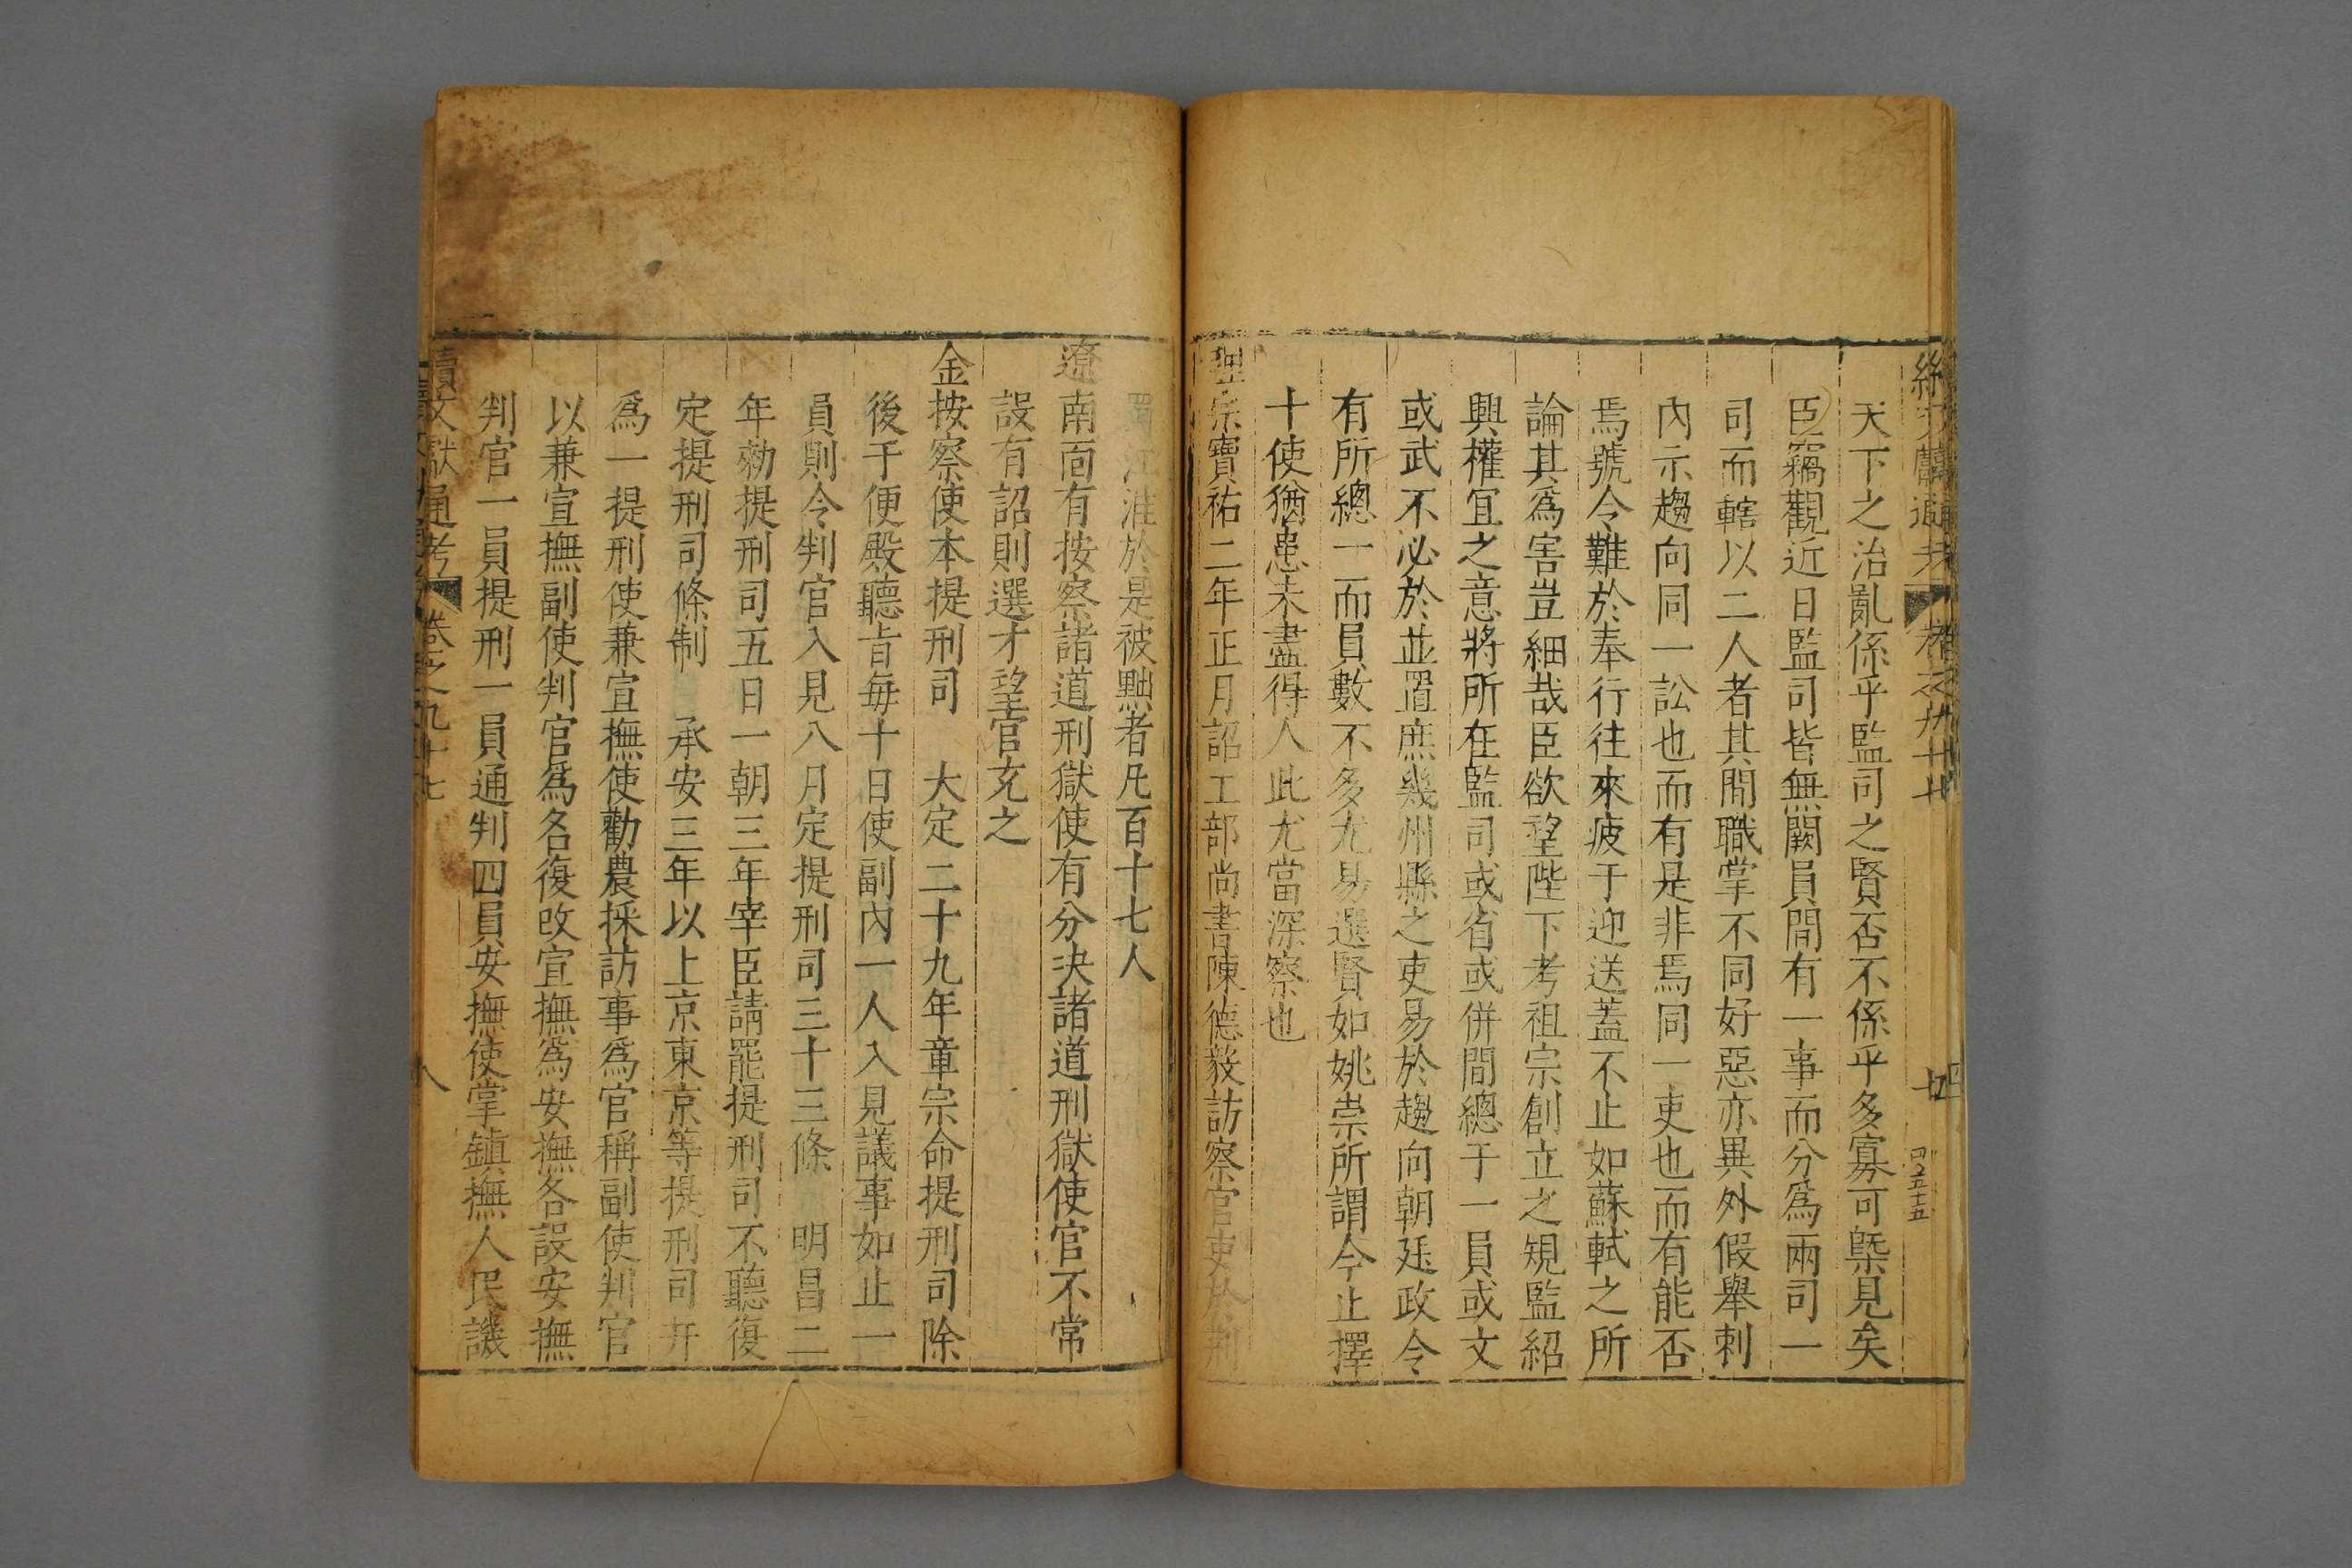 天下之治亂係乎監司之賢否不係乎多寡可槩見矣
臣竊觀近日監司皆無闕員間有一事而分爲兩司一
司而轄以二人者其間職掌不同好惡亦異外假舉刺
內示趨向同一訟也而有是非焉同一吏也而有能否
焉號令難於奉行往來疲于迎送蓋不止如蘇軾之所
論其爲害豈細哉臣欲望陛下考祖宗創立之規監紹
興權冝之意將所在監司或省或併間總于一員或文
或武不必於並置庶幾州縣之吏易於趨向朝廷政令
有所總一而員數不多尤易選賢如姚崇所謂今止擇
十使猶患未盡得人此尤當深察也
理宗寶祐二年正月詔工部尚書陳德毅訪察官吏於荆
蜀江淮於是被黜者凡百十七人
遼南面有按察諸道刑獄使有分决諸道刑獄使官不常
設有詔則選才望官充之
金按察使本提刑司 大定二十九年章宗命提刑司除
後于便殿聽旨每十日使副內一人入見議事如止一
員則令判官入見八月定提刑司三十三條 明昌二
年勑提刑司五日一朝三年宰臣請罷提刑司不聽復
定提刑司條制 承安三年以上京東京等提刑司幷
爲一提刑使兼宣撫使勸農採訪事爲官稱副使判官
以兼宣撫副使判官爲名復改宣撫爲安撫各設安撫
判官一員提刑一員通判四員安撫使掌鎮撫人民譏
續文獻通考 卷之九十七 八